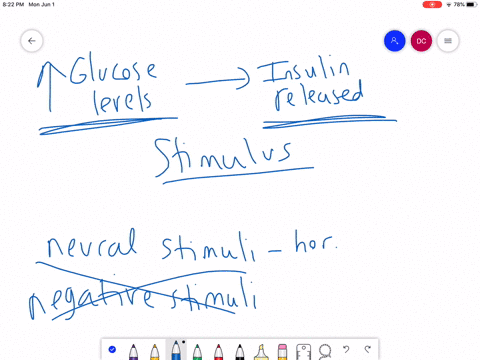 8:22 PM Mon Jun 1
78%
DC
↑ Glucose levels → Insulin released
Stimulus
neural stimuli - hor.
negative stimuli